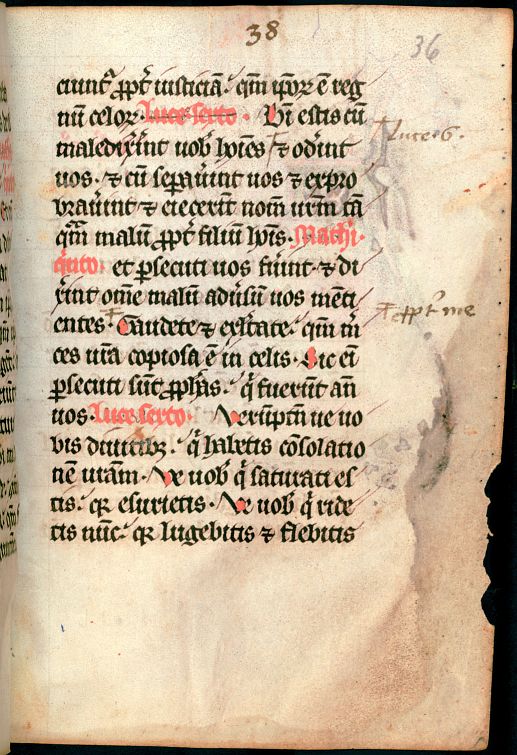 38
36
ciunt᷑ ꝓpt᷑ iusticiā. qm̄ ip̄oꝝ ē reg
nū celoꝝ. Luce sexto. Bn̄i estis cū
maledix̄int uob̄ hoīes ⁊ od̓int
luce 6.
uos. ⁊ cū sepauīnt uos ⁊ expro
brauīnt ⁊ eiecerīnt nom̄ ur̄m tā
qm̄ malū ꝓpt᷑ filiū hoīs. Mathi.
q̓nto. et ꝑsecuti uos fūint. ⁊ di
x̄int om̄e malū aduīsū uos mēti
entes. Gaudete ⁊ exl̓tate. qm̄ m̓
ꝓpt᷑ me
ces ur̄a copiosa ē in celis. Sic eī
ꝑsecuti sūt ꝓph̄as. q̓ fuerūt an̄
uos. Luce sexto. Uerūptn̄ ue uo
bis diuitibꝫ. q̓ habetis cōsolatio
nē ur̄am. Ue uob̄ q̓ saturati es
tis. qꝛ esurietis. Ue uob̄ q̓ ride
tis nūc. qꝛ lugebitis ⁊ flebitis